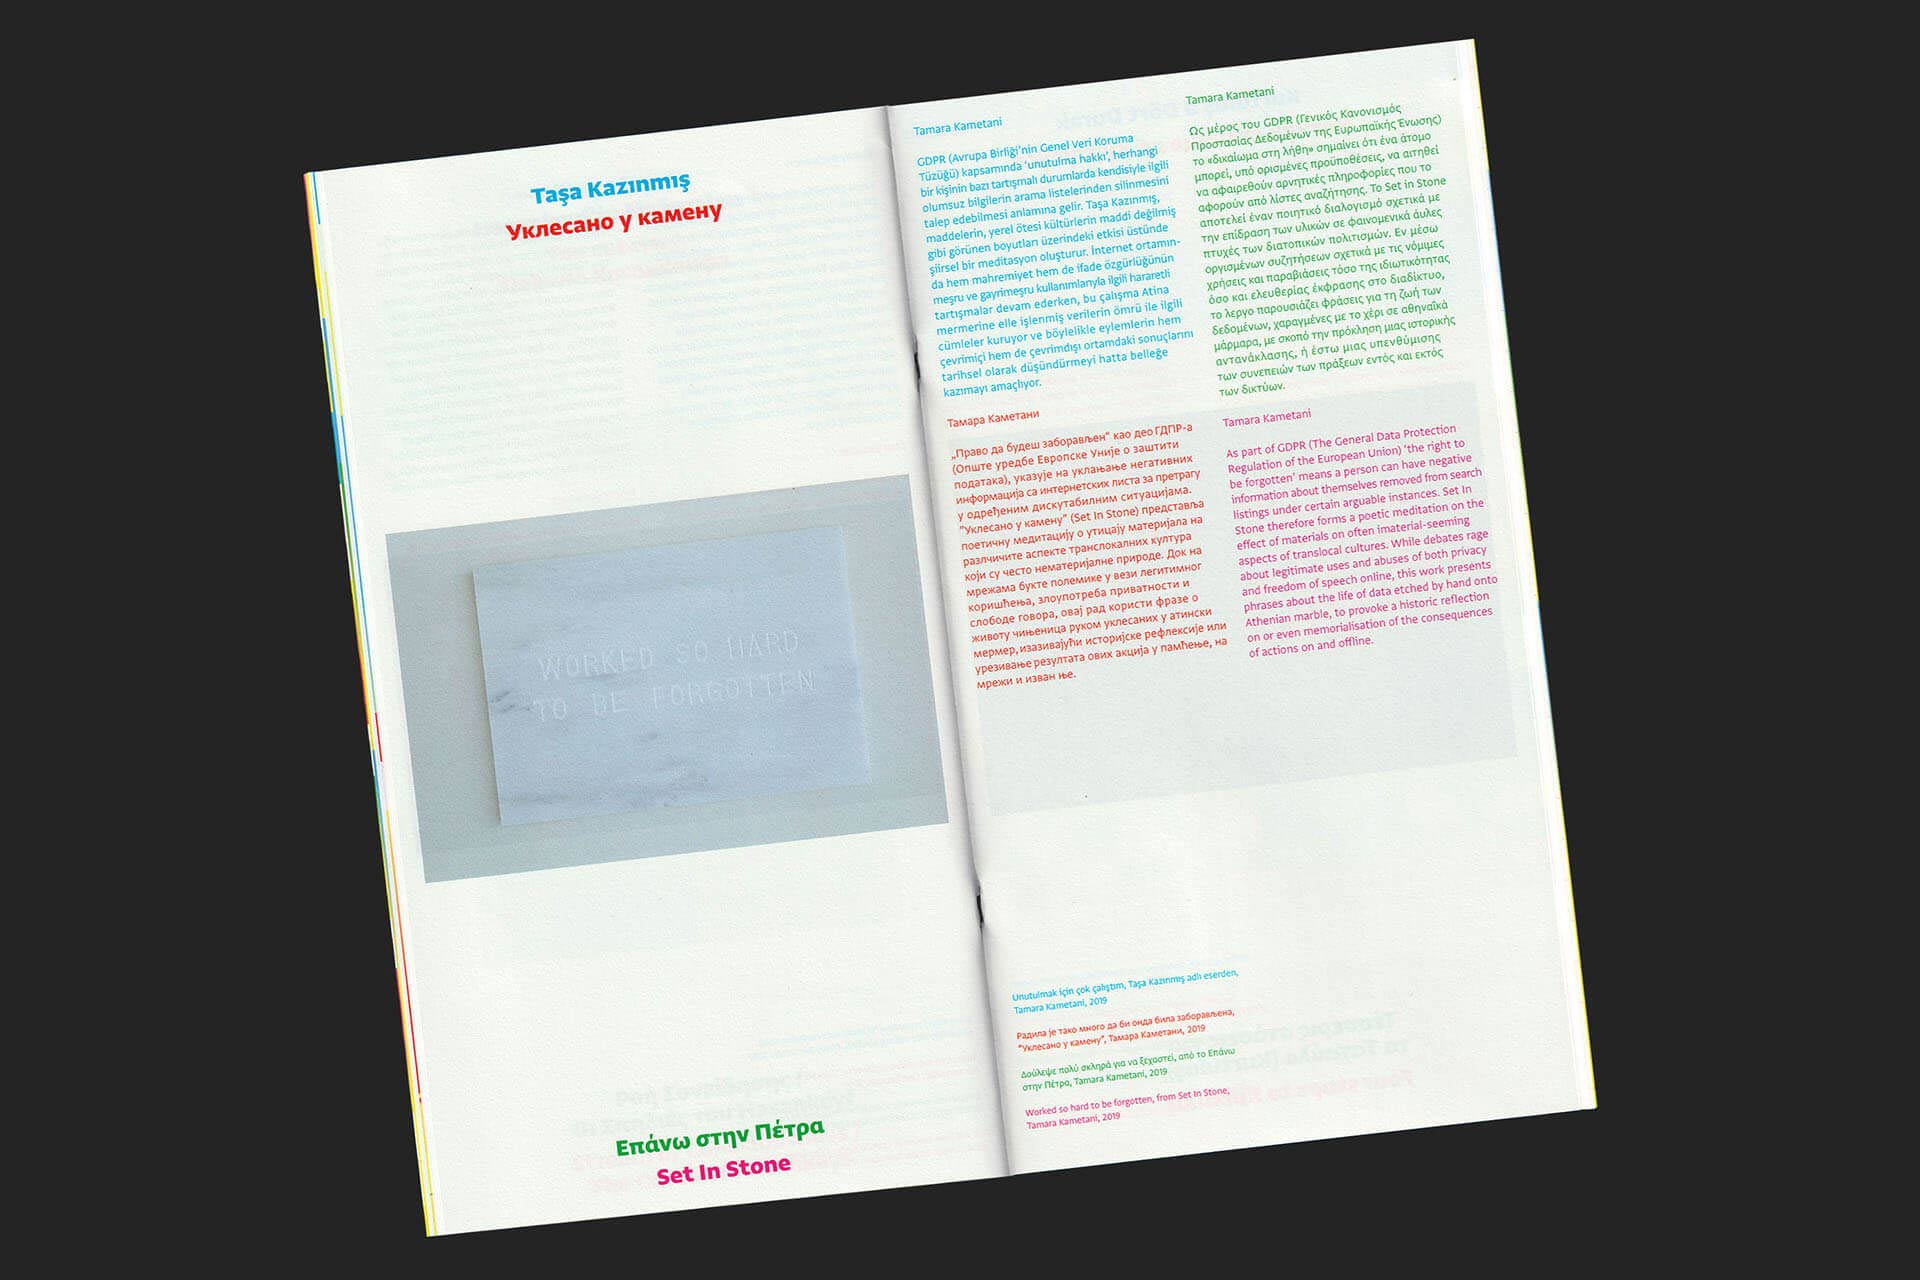 Taşa Kazınmış
Уклесано у камену
WORKED SO HARD
TO BE FORGOTTEN
Επάνω στην Πέτρα
Set In Stone
Tamara Kametani
GDPR (Avrupa Birliği'nin Genel Veri Koruma
Tüzüğü) kapsamında 'unutulma hakkı', herhangi
bir kişinin bazı tartışmalı durumlarda kendisiyle ilgili
olumsuz bilgilerin arama listelerinden silinmesini
talep edebilmesi anlamına gelir. Taşa Kazınmış,
maddelerin, yerel ötesi kültürlerin maddi değilmiş
gibi görünen boyutları üzerindeki etkisi üstünde
şiirsel bir meditasyon oluşturur. İnternet ortamın-
da hem mahremiyet hem de ifade özgürlüğünün
meşru ve gayrimeşru kullanımlarıyla ilgili hararetli
tartışmalar devam ederken, bu çalışma Atina
mermerine elle işlenmiş verilerin ömrü ile ilgili
cümleler kuruyor ve böylelikle eylemlerin hem
çevrimiçi hem de çevrimdışı ortamdaki sonuçlarını
tarihsel olarak düşündürmeyi hatta belleğe
kazımayı amaçlıyor.
Tamara Kametani
Ως μέρος του GDPR (Γενικός Κανονισμός
Προστασίας Δεδομένων της Ευρωπαϊκής Ένωσης)
το «δικαίωμα στη λήθη» σημαίνει ότι ένα άτομο
μπορεί, υπό ορισμένες προϋποθέσεις, να αιτηθεί
να αφαιρεθούν αρνητικές πληροφορίες που το
αφορούν από λίστες αναζήτησης. Το Set in Stone
αποτελεί έναν ποιητικό διαλογισμό σχετικά με
την επίδραση των υλικών σε φαινομενικά άυλες
πτυχές των διατοπικών πολιτισμών. Εν μέσω
οργισμένων συζητήσεων σχετικά με τις νόμιμες
χρήσεις και παραβιάσεις τόσο της ιδιωτικότητας
όσο και ελευθερίας έκφρασης στο διαδίκτυο,
το λεργο παρουσιάζει φράσεις για τη ζωή των
δεδομένων, χαραγμένες με το χέρι σε αθηναϊκά
μάρμαρα, με σκοπό την πρόκληση μιας ιστορικής
αντανάκλασης, ή έστω μιας υπενθύμισης
των συνεπειών των πράξεων εντός και εκτός
των δικτύων.
Тамара Каметани
„Право да будеш заборављен“ као део ГДПР-а
(Опште уредбе Европске Уније о заштити
података), указује на уклањање негативних
информација са интернетских листа за претрагу
у одређеним дискутабилним ситуацијама.
“Уклесано у камену” (Set In Stone) представља
поетичну медитацију о утицају материјала на
разлчичите аспекте транслокалних култура
који су често нематеријалне природе. Док на
мрежама букте полемике у вези легитимног
коришћења, злоупотреба приватности и
слободе говора, овај рад користи фразе о
животу чињеница руком уклесаних у атински
мермер, изазивајући историјске рефлексије или
урезивање резултата ових акција у памћење, на
мрежи и изван ње.
Tamara Kametani
As part of GDPR (The General Data Protection
Regulation of the European Union) 'the right to
be forgotten' means a person can have negative
information about themselves removed from search
listings under certain arguable instances. Set In
Stone therefore forms a poetic meditation on the
effect of materials on often imaterial-seeming
aspects of translocal cultures. While debates rage
about legitimate uses and abuses of both privacy
and freedom of speech online, this work presents
phrases about the life of data etched by hand onto
Athenian marble, to provoke a historic reflection
on or even memorialisation of the consequences
of actions on and offline.
Unutulmak için çok çalıştım, Taşa Kazınmış adlı eserden,
Tamara Kametani, 2019
Радила је тако много да би онда била заборављена,
“Уклесано у камену”, Тамара Каметани, 2019
Δούλεψε πολύ σκληρά για να ξεχαστεί, από το Επάνω
στην Πέτρα, Tamara Kametani, 2019
Worked so hard to be forgotten, from Set In Stone,
Tamara Kametani, 2019